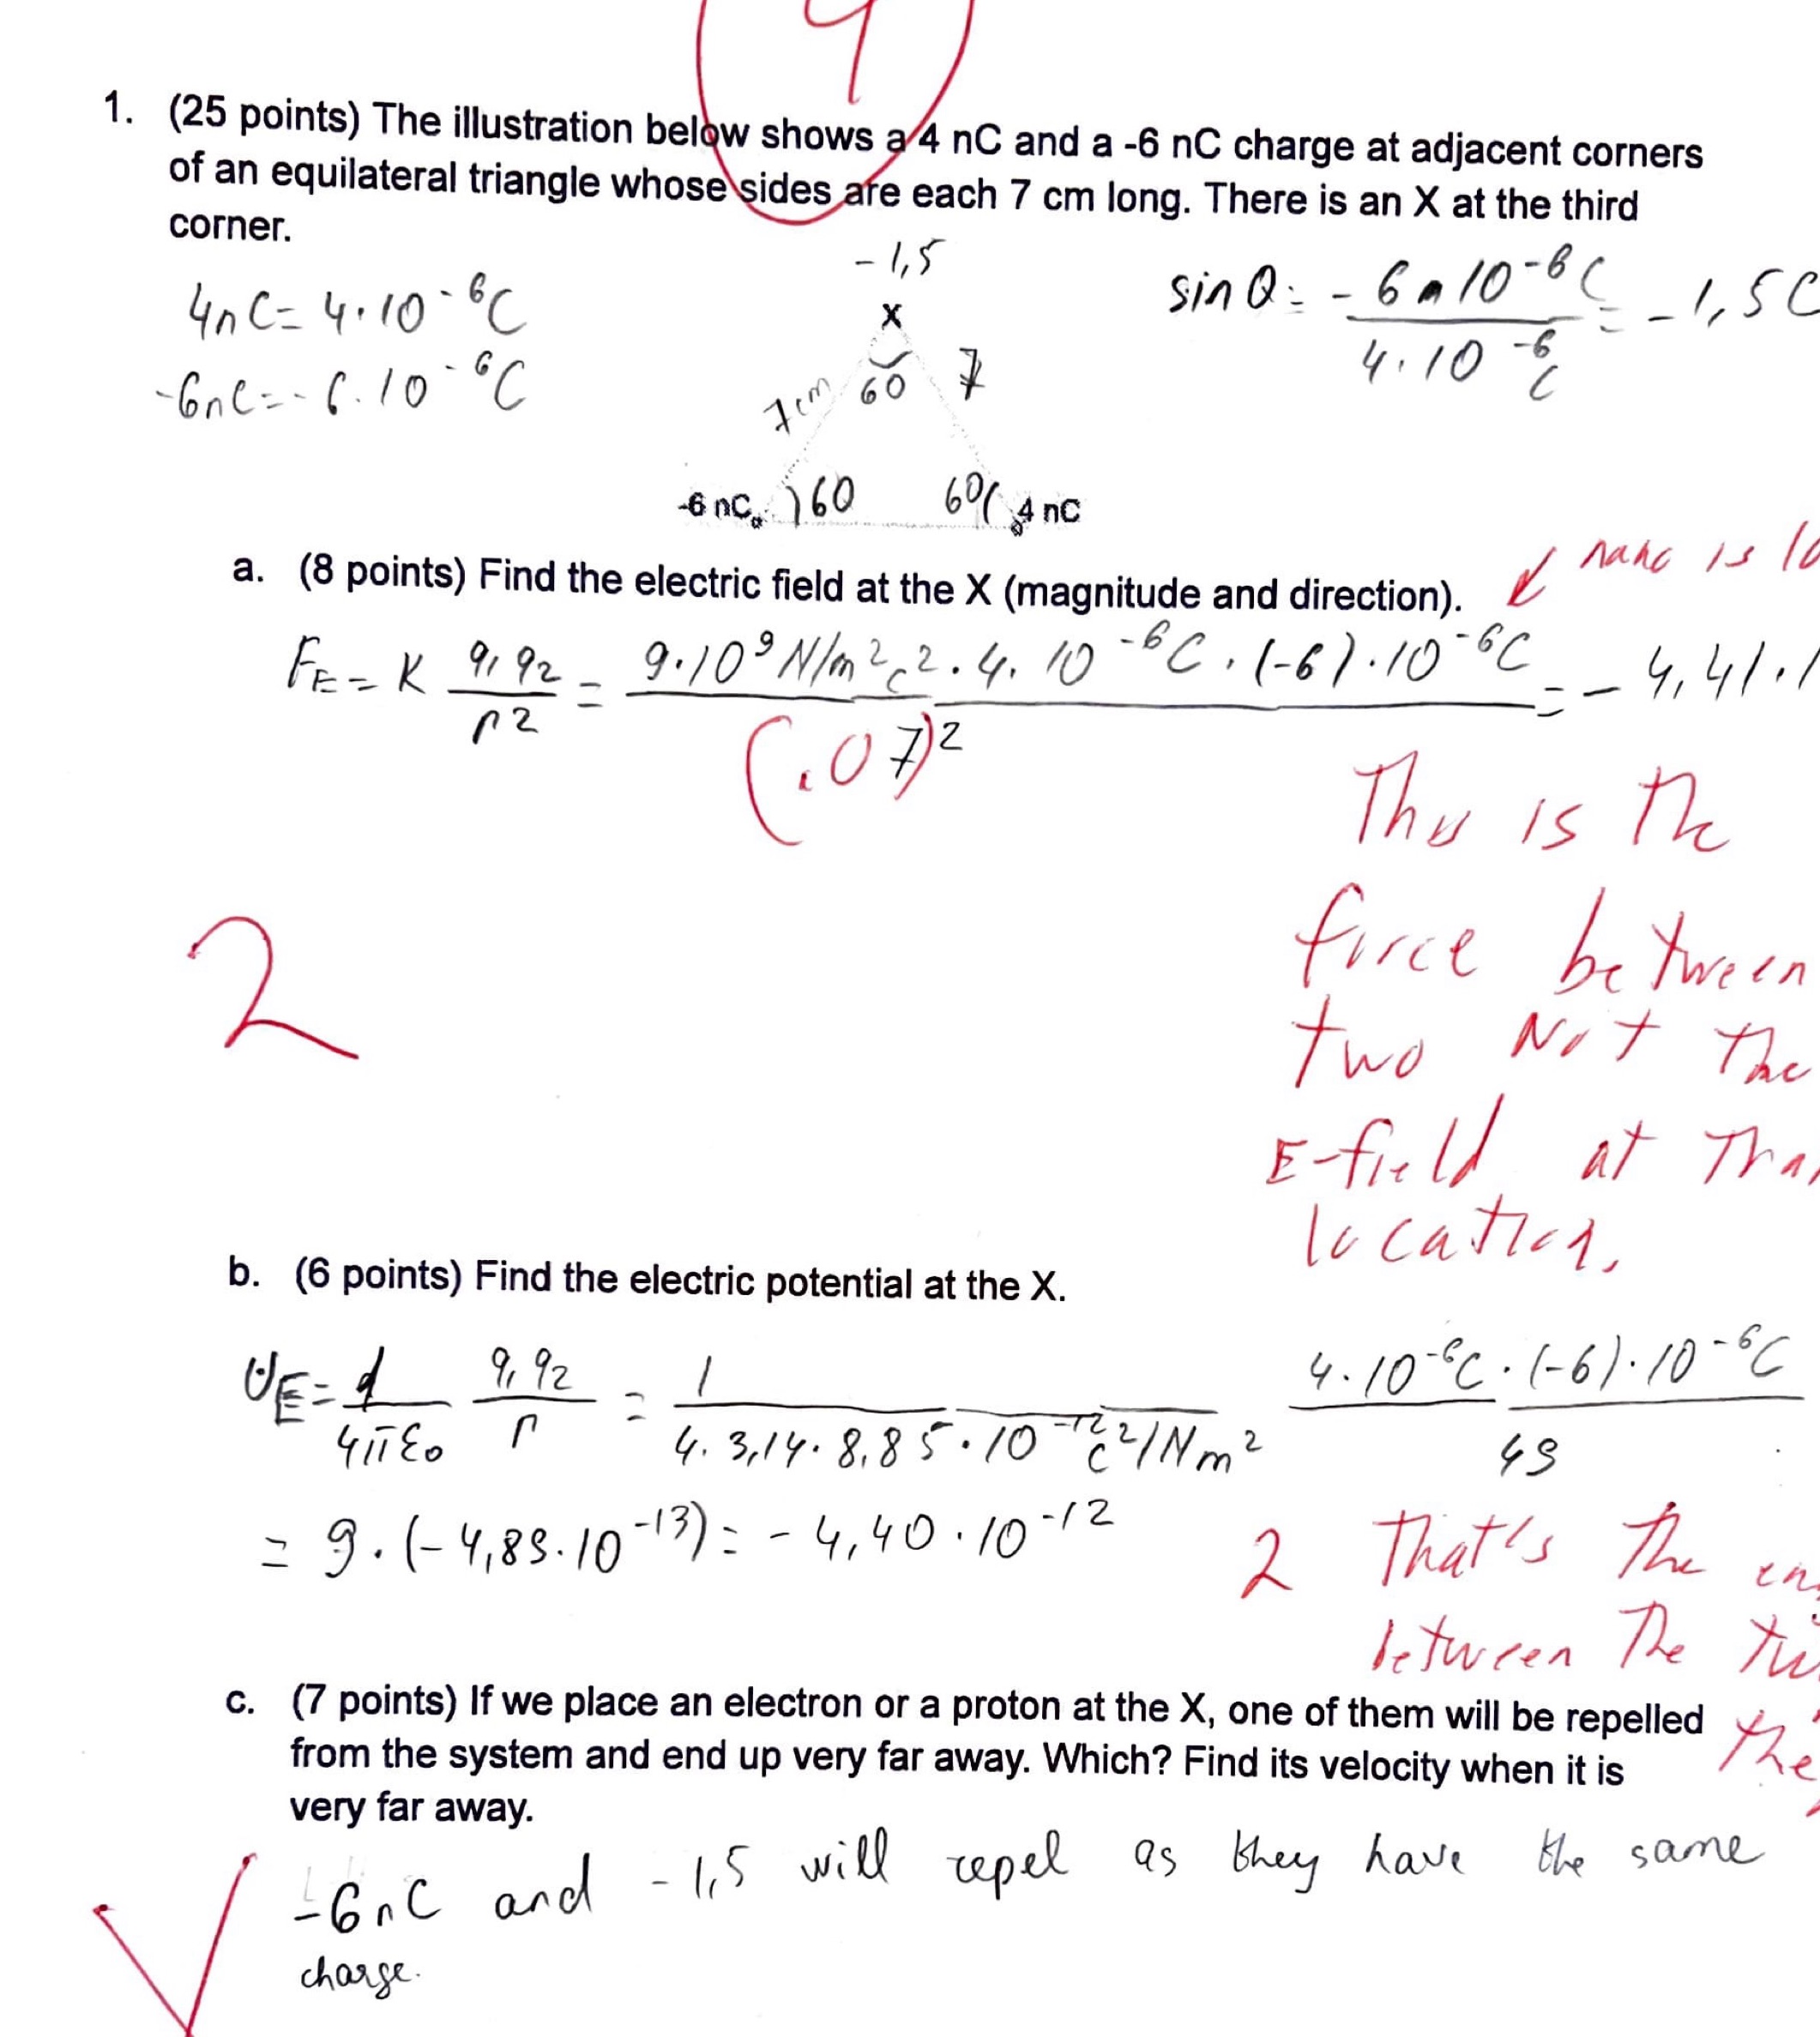 4
1. (25 points) The illustration below shows a 4 nC and a -6 nC charge at adjacent corners
of an equilateral triangle whose sides are each 7 cm long. There is an X at the third
corner.
4nC = 4·10⁻⁶C
-6nC = -6·10⁻⁶C
-1,5
X
7cm 60 7
-6 nC 60 60 4 nC
sin Q = -6·10⁻⁶C / 4·10⁻⁶C = -1,5C
a. (8 points) Find the electric field at the X (magnitude and direction).
nano is 10
F_E = K q₁q₂/r² = 9·10⁹N/m²c²·4·10⁻⁶C·(-6)·10⁻⁶C / (.07)² = -4,41·1
This is the
force between
two Not the
E-field at
location.
2
b. (6 points) Find the electric potential at the X.
U_E = 1/4πε₀ q₁q₂/r = 1 / 4·3,14·8,85·10⁻¹²c²/Nm² 4·10⁻⁶C·(-6)·10⁻⁶C / 49
= 9·(-4,89·10⁻¹³) = -4,40·10⁻¹²
2 That's The
between The
c. (7 points) If we place an electron or a proton at the X, one of them will be repelled
from the system and end up very far away. Which? Find its velocity when it is
very far away.
-6nC and -1,5 will repel as they have the same
charge.